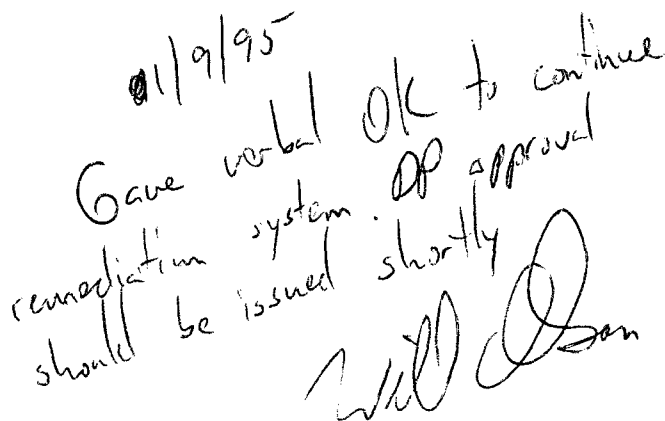 1/9/95
Gave verbal OK to continue
remediation system. DP approval
should be issued shortly
Will Olson